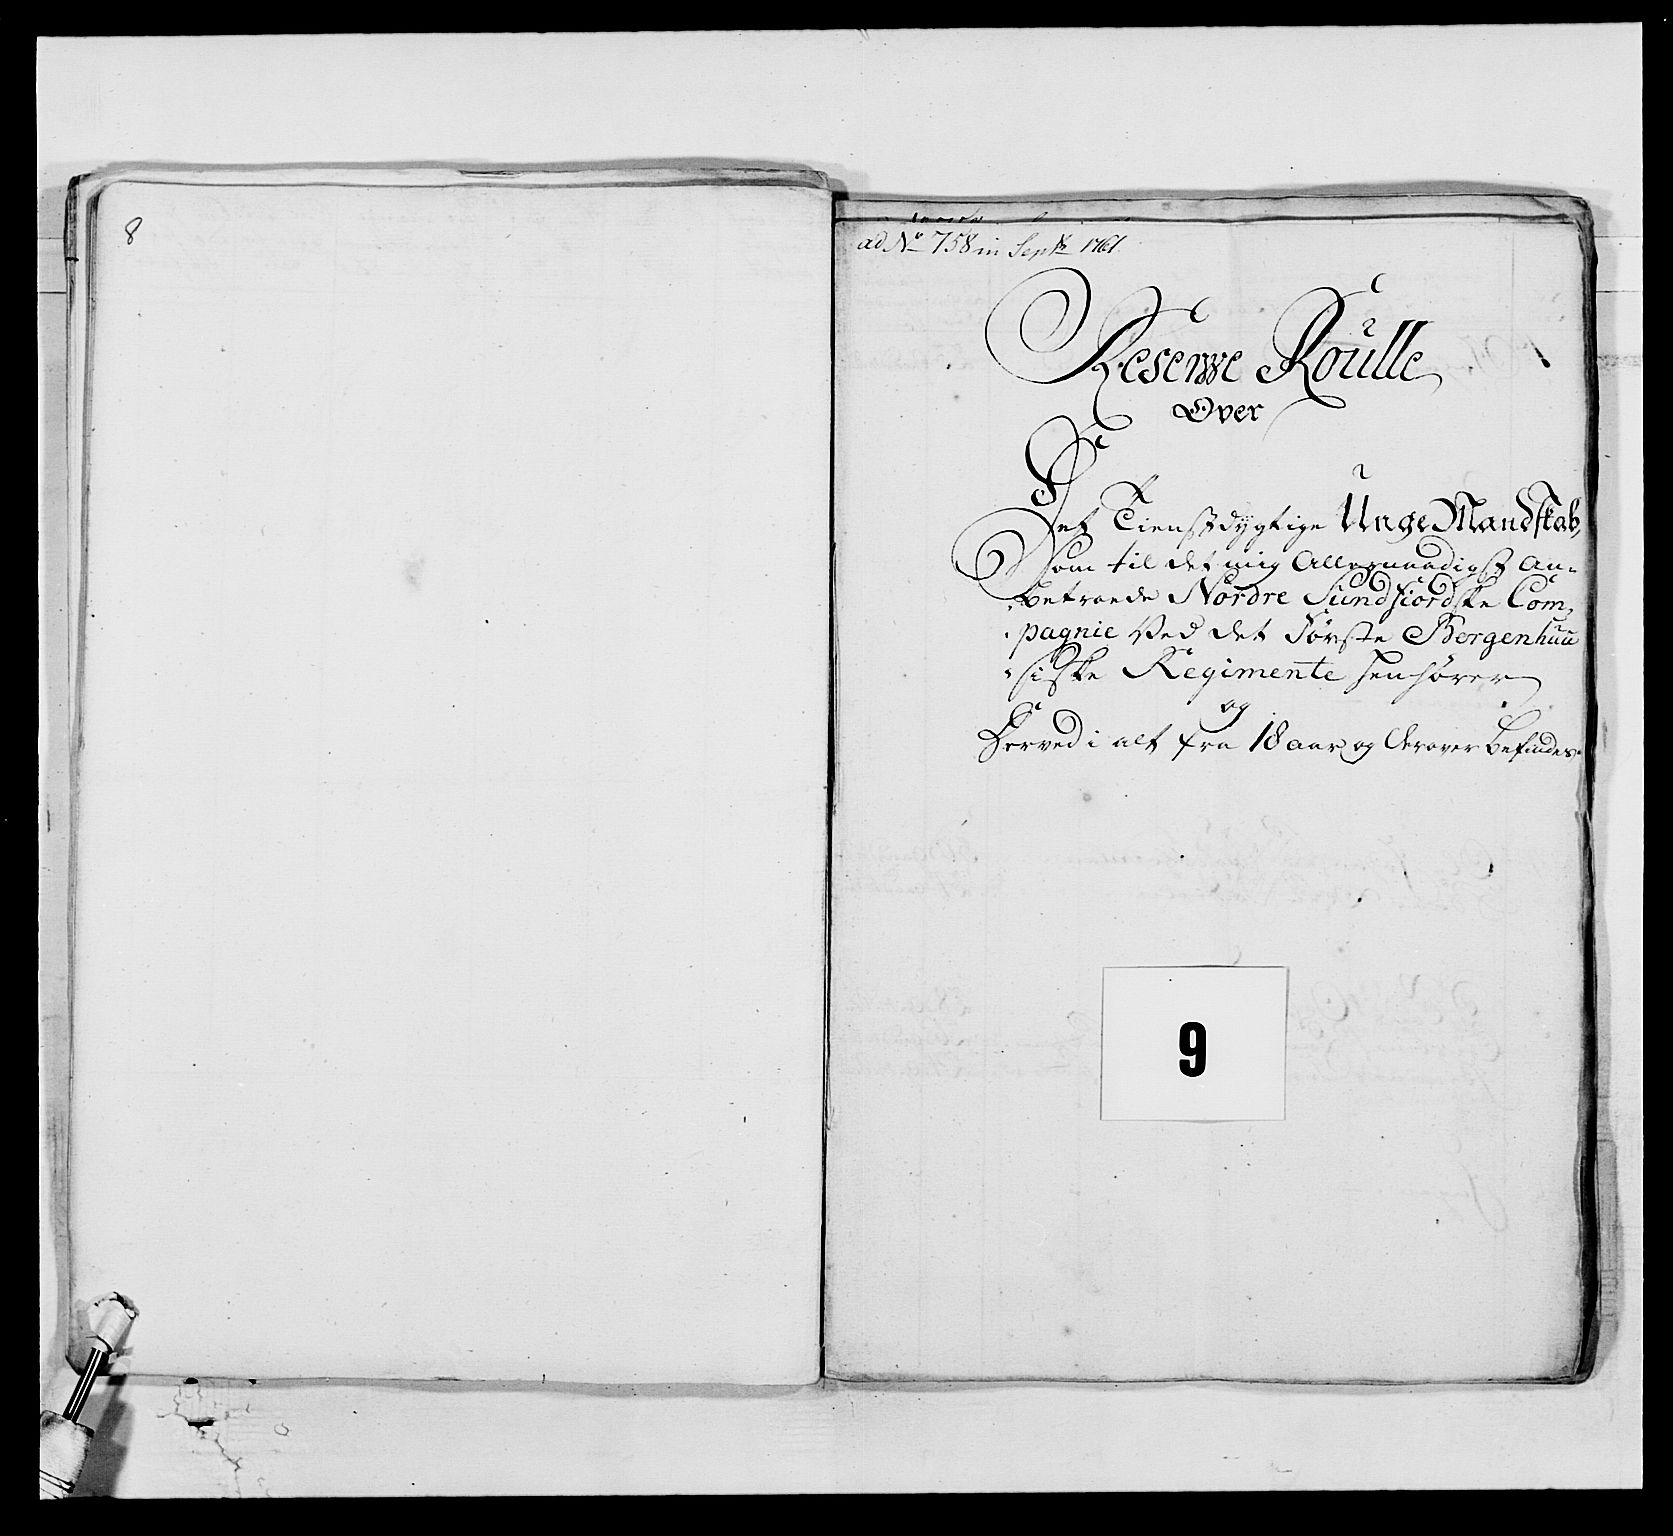 8
ad No 758 in Septr 1761.
Reserve Roulle
Over
Det Tienstdygtige Unge Mandskab,
Som til det mig Allernaadigst An-
betroede Nordre Sundfiordske Com,
pagnie Ved det Første Bergenhuu
siske Regimente henhører
og
Derved i alt fra 18 aar og derover befindes.
9